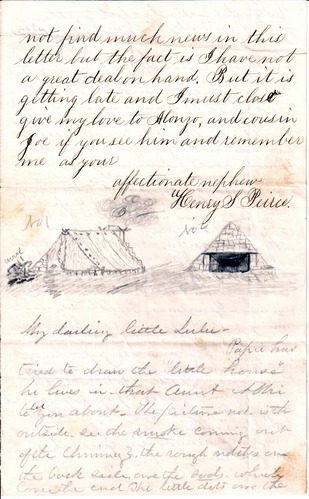 not find much news in this
letter but the fact is I have not
a great deal on hand. But it is
getting late and I must close
give my love to Alonzo, and cousin
Joe if you see him and remember
me as your
affectionate nephew
Henry S Peirce.
No 1
No 2
My darling little Lulu-
Papa has
tried to draw the "little house"
he lives in that Aunt
about. The picture no 1 with
outside, see the smoke coming out
of the chimney, the rough notches on
the back side are the which
the end The little dots are the